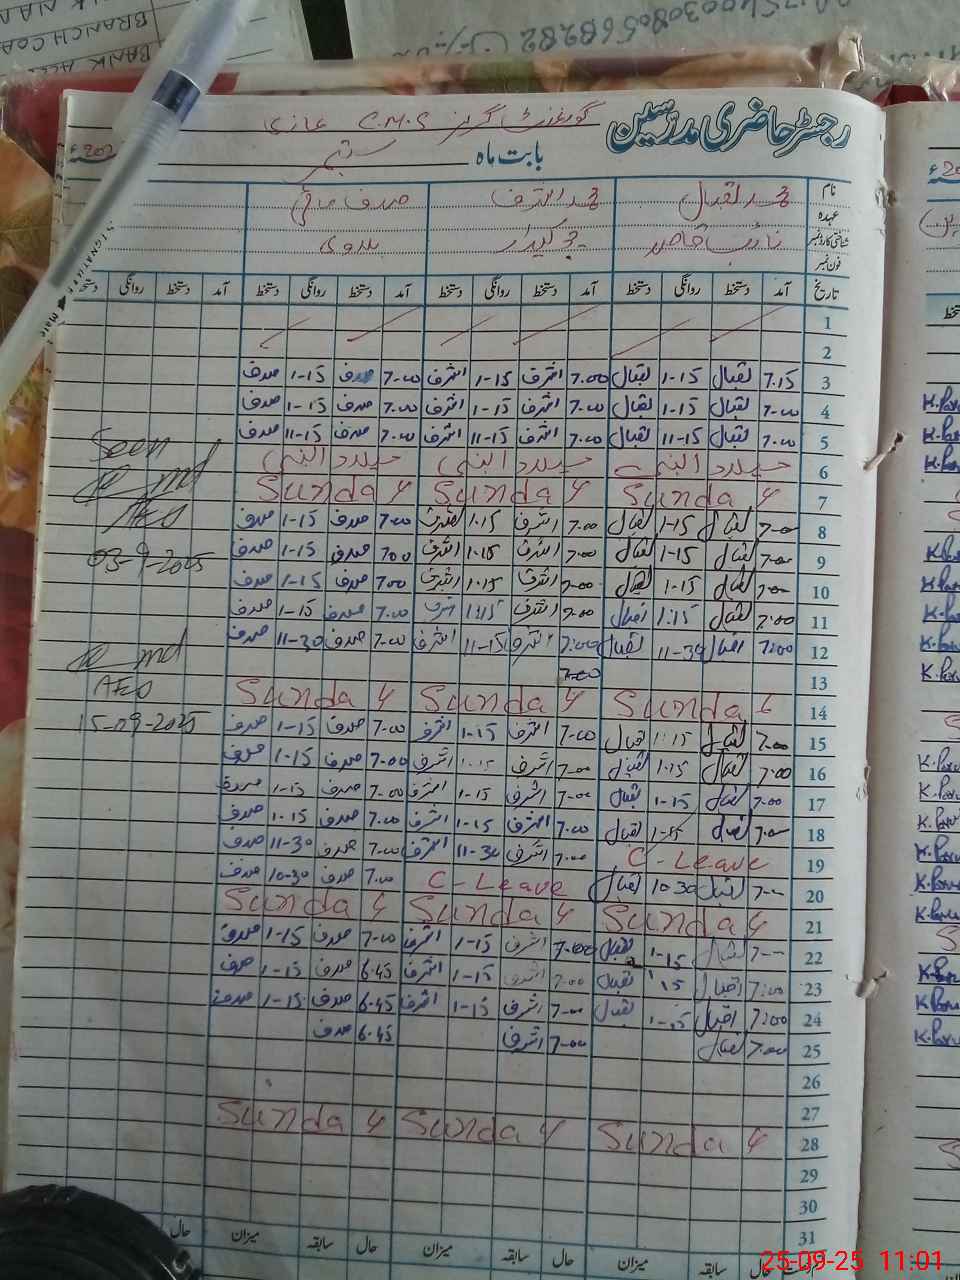 رجسٹر حاضری مدرسین
گورنمنٹ گرلز C.M.S
بابت ماہ ستمبر
نام محمد اقبال محمد اشرف صدف
عہدہ
شناختی کارڈ نمبر نائب قاصد چوکیدار
فون نمبر
تاریخ آمد دستخط روانگی دستخط آمد دستخط روانگی دستخط آمد دستخط روانگی دستخط آمد دستخط روانگی دستخط
1
2
3 7.15 اقبال 1-15 اقبال 7.00 اشرف 1-15 اشرف 7-00 صدف 1-15 صدف
4 7-00 اقبال 1-15 اقبال 7.00 اشرف 1-15 اشرف 7.00 صدف 1-15 صدف
5 7.00 اقبال 11-15 اقبال 7.00 اشرف 11-15 اشرف 7.00 صدف 11-15 صدف
6 میلاد النبی میلاد النبی میلاد النبی
7 Sunday Sunday Sunday
8 7-00 اقبال 1-15 اقبال 7.00 اشرف 1.15 اشرف 7.00 صدف 1-15 صدف
9 7-00 اقبال 1-15 اقبال 7-00 اشرف 1.15 اشرف 700 صدف 1-15 صدف
10 7-00 اقبال 1.15 اقبال 7-00 اشرف 1.15 اشرف 700 صدف 1-15 صدف
11 7:00 اقبال 1:15 اقبال 7.00 اشرف 1:15 اشرف 7.00 صدف 1-15 صدف
12 7:00 اقبال 11-30 اقبال 7:00 اشرف 11-15 اشرف 7.00 صدف 11-30 صدف
13 7.00
14 Sunday Sunday Sunday
15 7.00 اقبال 1:15 اقبال 7-00 اشرف 1-15 اشرف 7-00 صدف 1-15 صدف
16 7:00 اقبال 1.15 اقبال 7-00 اشرف 1.15 اشرف 7-00 صدف 1.15 صدف
17 7.00 اقبال 1-15 اقبال 7-00 اشرف 1-15 اشرف 7-00 صدف 1-15 صدف
18 7.00 اقبال 1-15 اقبال 7.00 اشرف 1-15 اشرف 7.00 صدف 1.15 صدف
19 C-Leave 7.00 اشرف 11-30 اشرف 7.00 صدف 11-30 صدف
20 7-00 اقبال 10-30 اقبال C-Leave 7.00 صدف 10-30 صدف
21 Sunday Sunday Sunday
22 7-00 اقبال 1-15 اقبال 7.00 اشرف 1-15 اشرف 7-00 صدف 1-15 صدف
23 7:00 اقبال 15 اقبال 7:00 اشرف 1-15 اشرف 6.45 صدف 1-15 صدف
24 7:00 اقبال 1-15 اقبال 7-00 اشرف 1-15 اشرف 6.45 صدف 1-15 صدف
25 7.00 اقبال 7-00 اشرف 6.45 صدف
26
27
28 Sunday Sunday Sunday
29
30
31
حال سابقہ میزان حال سابقہ میزان حال سابقہ میزان حال
Seen
AEO
03-9-2025
AEO
15-09-2025
BRANCH COD
25-09-25 11:01